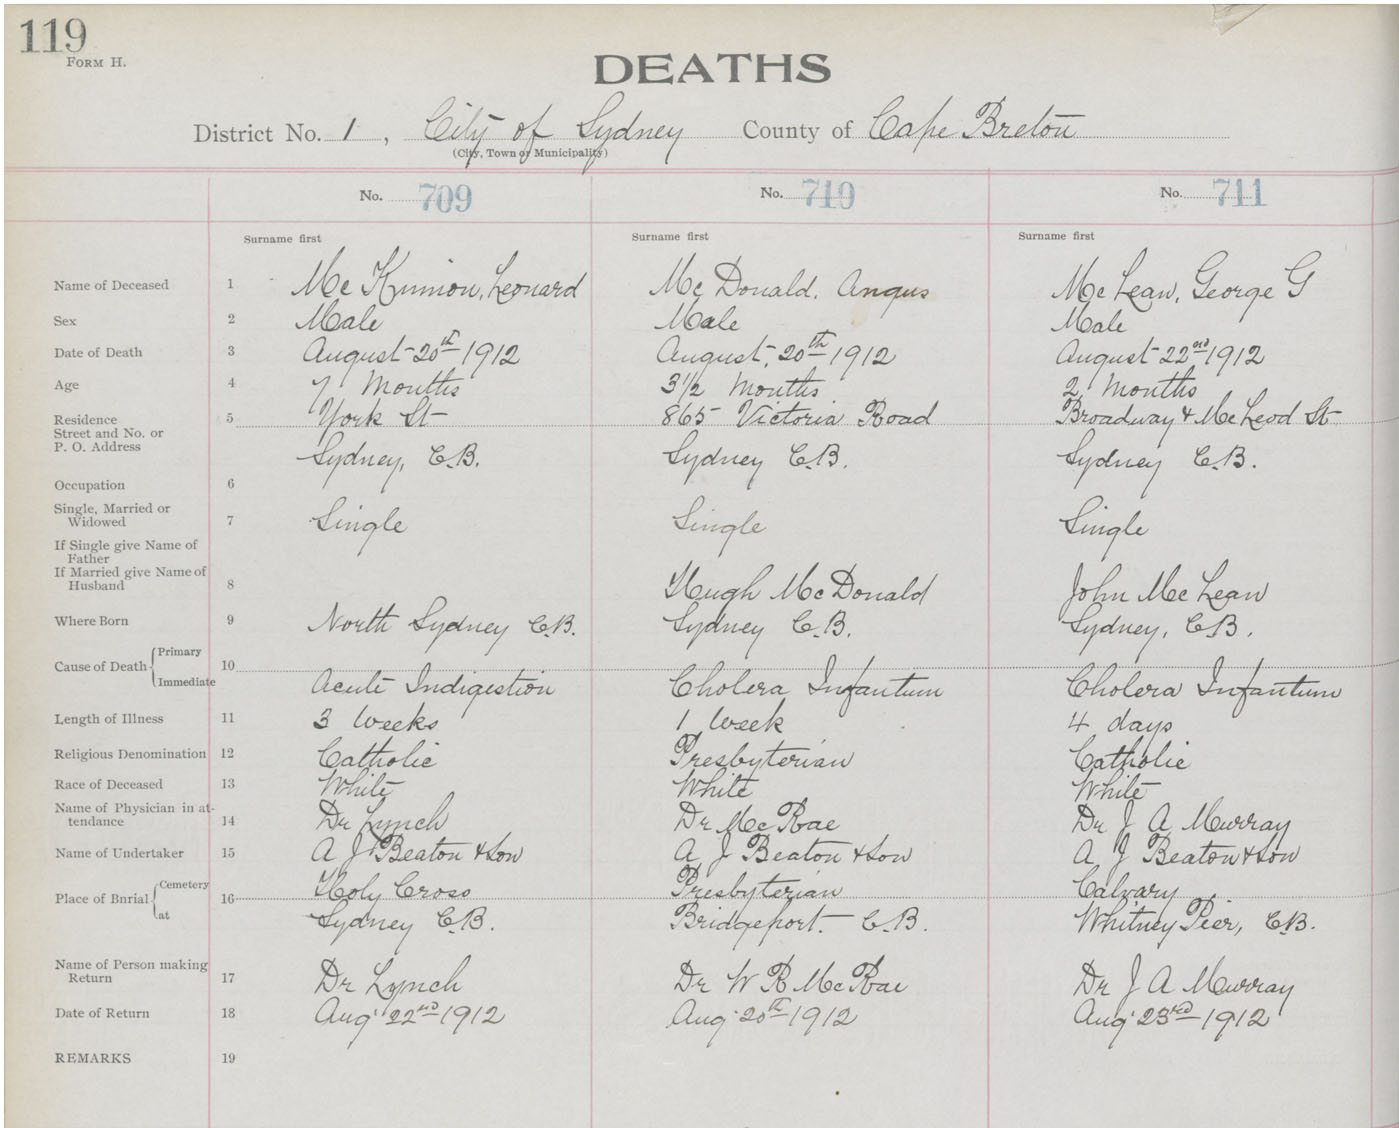 119
FORM H.
DEATHS
District No. 1, City of Sydney County of Cape Breton
(City, Town or Municipality)
No. 709 No. 710 No. 711
Surname first Surname first Surname first
Name of Deceased 1 McKinnon, Leonard McDonald, Angus McLean, George G
Sex 2 Male Male Male
Date of Death 3 August 20th 1912 August, 20th 1912 August 22nd 1912
Age 4 7 Months 3 1/2 Months 2 Months
Residence 5 York St 865 Victoria Road Broadway & McLeod St
Street and No. or
P. O. Address Sydney, C.B. Sydney C.B. Sydney C.B.
Occupation 6
Single, Married or
Widowed 7 Single Single Single
If Single give Name of
Father
If Married give Name of
Husband 8 Hugh McDonald John McLean
Where Born 9 North Sydney C.B. Sydney C.B. Sydney, C.B.
Cause of Death { Primary 10
Immediate Acute Indigestion Cholera Infantum Cholera Infantum
Length of Illness 11 3 Weeks 1 Week 4 days
Religious Denomination 12 Catholic Presbyterian Catholic
Race of Deceased 13 White White White
Name of Physician in at-
tendance 14 Dr Lynch Dr McRae Dr J A Murray
Name of Undertaker 15 A J Beaton & Son A J Beaton & Son A J Beaton & Son
Place of Bnrial { Cemetery 16 Holy Cross Presbyterian Calvary
at Sydney C.B. Bridgeport. C.B. Whitney Pier, C.B.
Name of Person making
Return 17 Dr Lynch Dr W R McRae Dr J A Murray
Date of Return 18 Aug 22nd 1912 Aug 20th 1912 Aug 23rd 1912
REMARKS 19